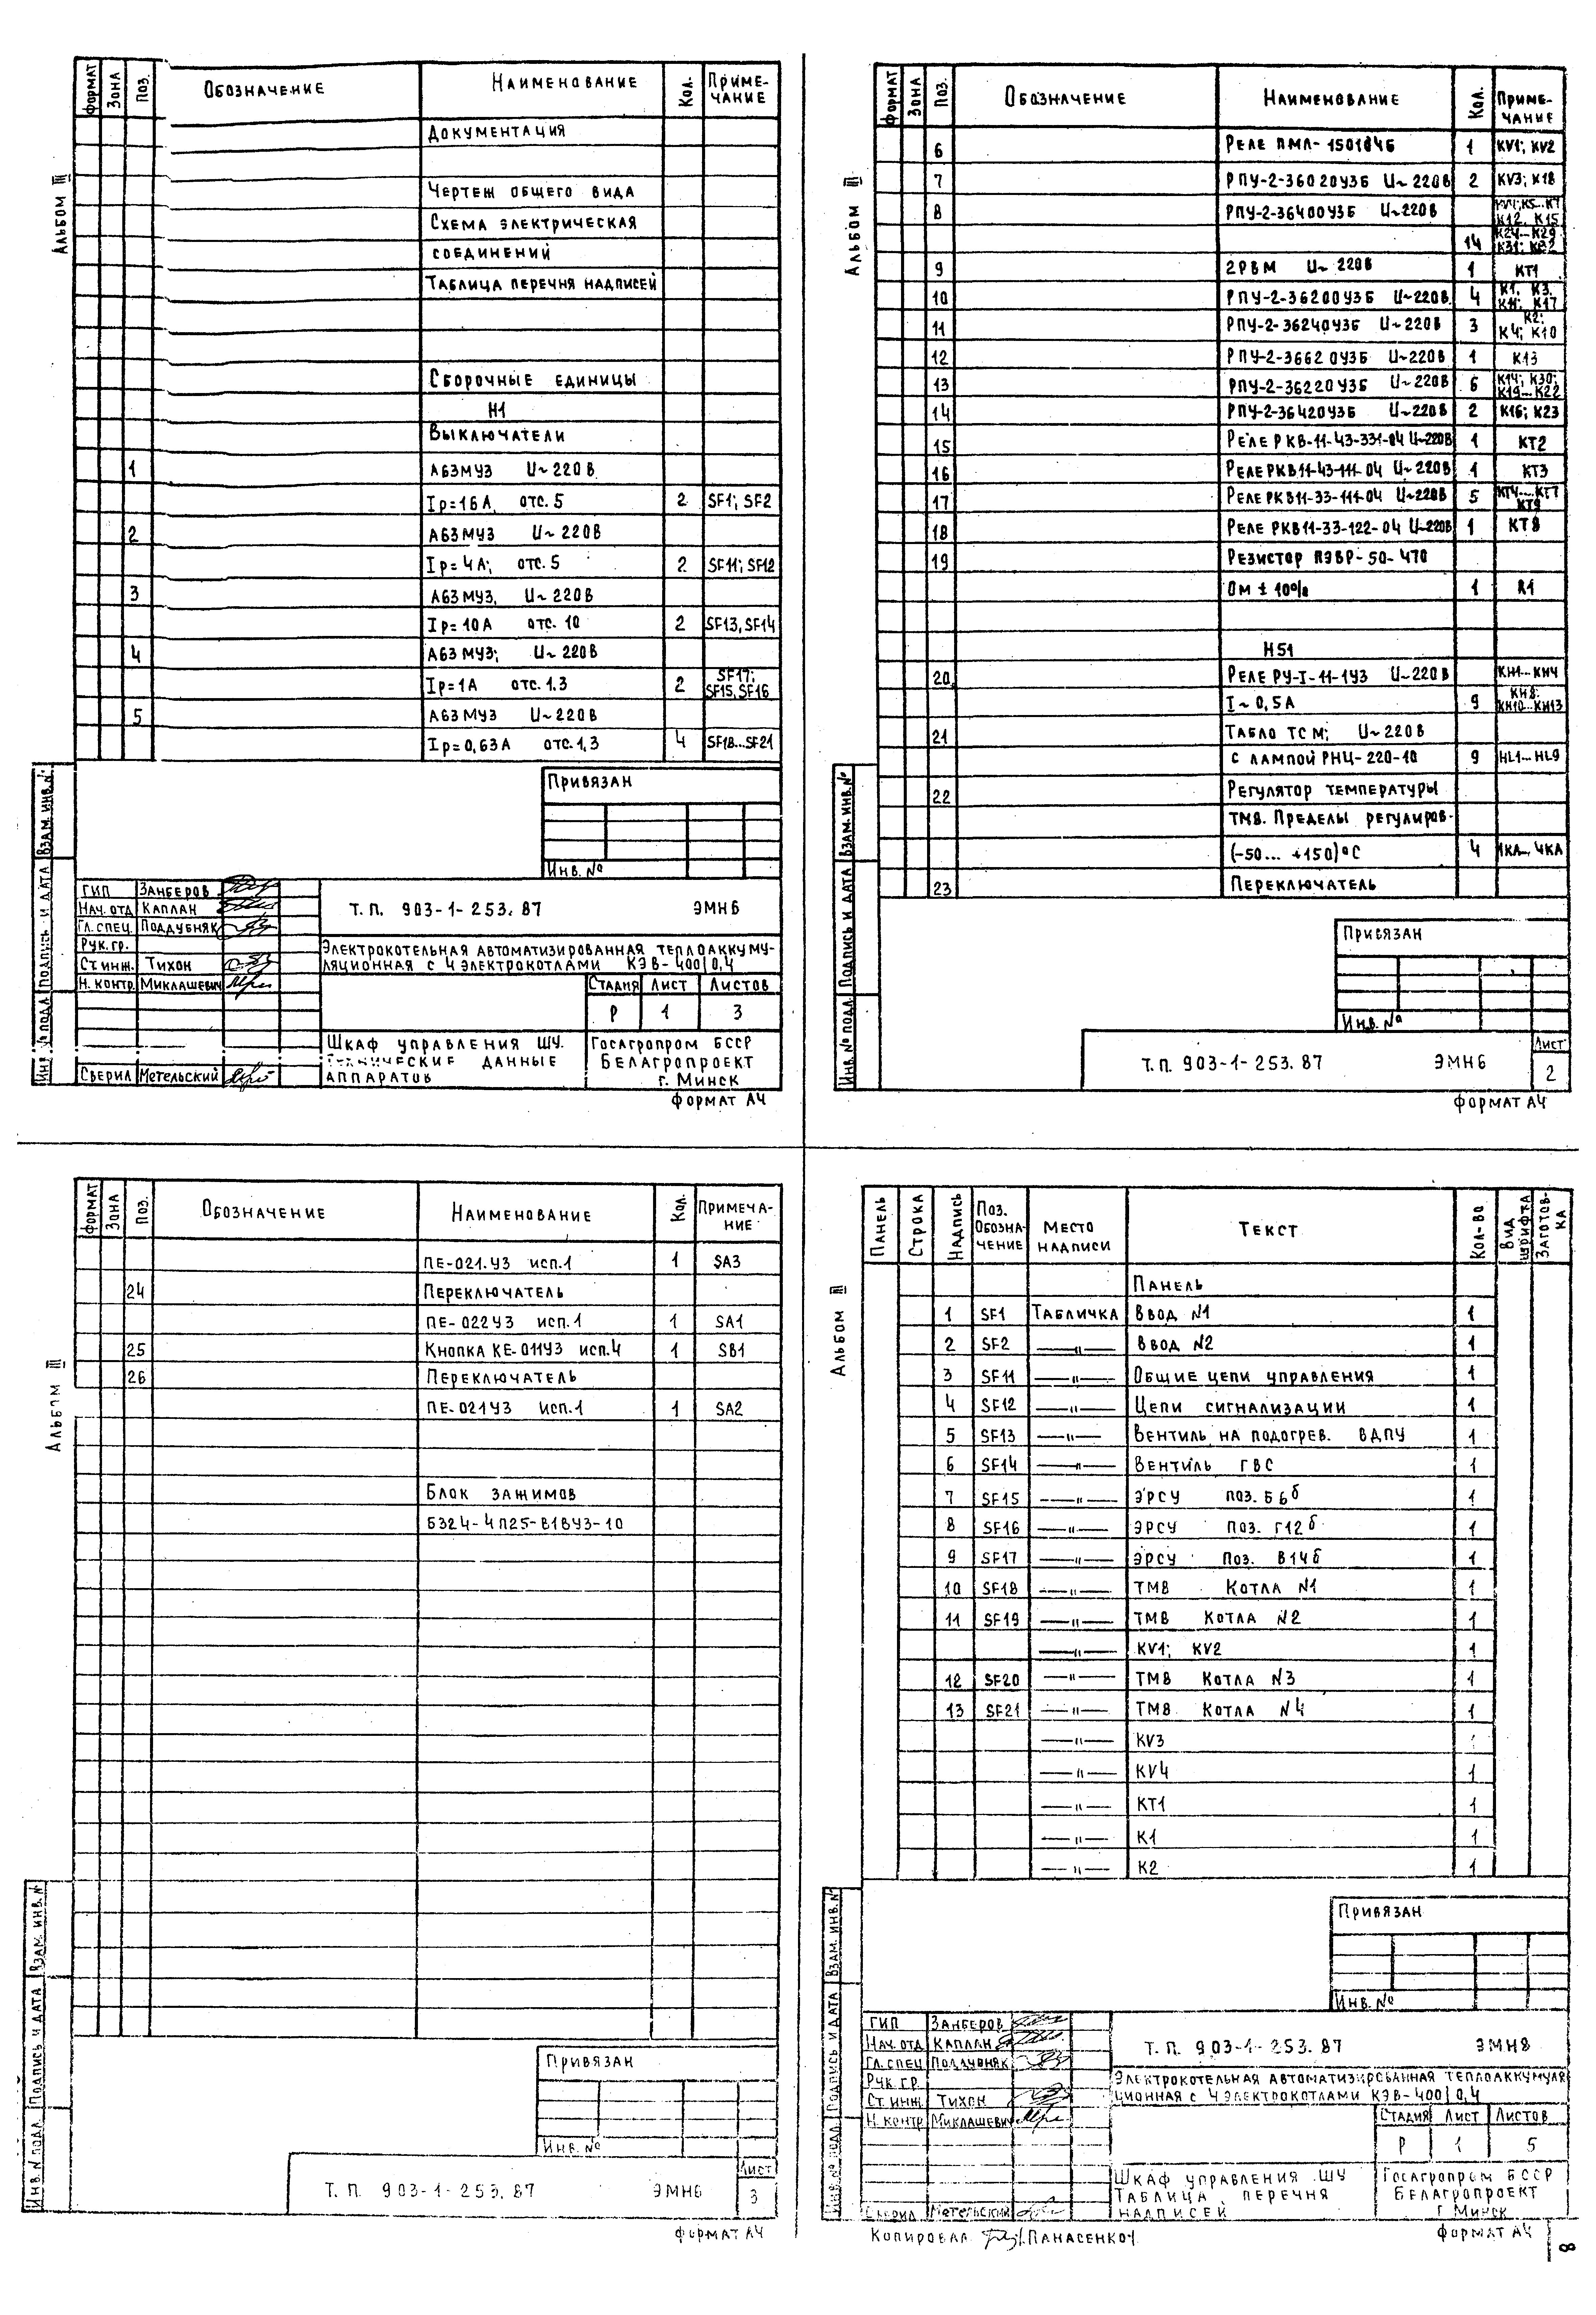 Альбом III
Формат Зона Поз. Обозначение Наименование Кол. Примечание
Документация
Чертеж общего вида
Схема электрическая
соединений
Таблица перечня надписей
Сборочные единицы
Н1
Выключатели
1 А63МУ3 U~220В
Iр=16А, отс. 5 2 SF1; SF2
2 А63МУ3 U~220В
Iр=4А; отс. 5 2 SF11; SF12
3 А63МУ3, U~220В
Iр=10А отс. 10 2 SF13, SF14
4 А63МУ3; U~220В
Iр=1А отс. 1.3 2 SF17; SF15, SF16
5 А63МУ3 U~220В
Iр=0,63А отс. 1,3 4 SF18...SF21
Привязан
Инв. №
Взам. инв. №
Подпись и дата
Инв. № подл.
ГИП Занберов
Нач. отд. Каплан
Гл. спец. Поддубняк
Рук. гр.
Ст. инж. Тихон
Н. контр. Миклашевич
Сверил Метельский
Т. П. 903-1-253.87 ЭМН6
Электрокотельная автоматизированная теплоаккуму-
ляционная с 4 электрокотлами КЭВ-400/0,4
Стадия Лист Листов
Р 1 3
Шкаф управления ШУ.
Технические данные
аппаратов
Госагропром БССР
Белагропроект
г. Минск
Формат А4
Альбом III
Формат Зона Поз. Обозначение Наименование Кол. Примечание
6 Реле ПМЛ-1501 1 KV1; KV2
7 РПУ-2-36020У3Б U~220В 2 KV3; К18
8 РПУ-2-36400У3Б U~220В К12, К15
14 К24...К29 К31; К32
9 2РВМ U~220В 1 КТ1
10 РПУ-2-36200У3Б U~220В 4 К1, К3, К11; К17
11 РПУ-2-36240У3Б U~220В 3 К2; К4; К10
12 РПУ-2-36620У3Б U~220В 1 К13
13 РПУ-2-36220У3Б U~220В 6 К14; К30; К19...К22
14 РПУ-2-36420У3Б U~220В 2 К16; К23
15 Реле РКВ-11-43-331-04 U~220В 1 КТ2
16 Реле РКВ11-43-111-04 U~220В 1 КТ3
17 Реле РКВ11-33-111-04 U~220В 5 КТ4...КТ7 КТ9
18 Реле РКВ11-33-122-04 U~220В 1 КТ8
19 Резистор ПЭВР-50-470
Ом ± 10% 1 R1
Н51
20 Реле РУ-1-11-1У3 U~220В КН1...КН4
I~0,5А 9 КН8; КН10...КН13
21 Табло ТСМ; U~220В
с лампой РНЦ-220-10 9 HL1...HL9
22 Регулятор температуры
ТМ8. Пределы регулиров.
(-50... +150)°С 4 1КА...4КА
23 Переключатель
Привязан
Инв. №
Взам. инв. №
Подпись и дата
Инв. № подл.
Т. П. 903-1-253.87 ЭМН6
Лист
2
Формат А4
Альбом III
Формат Зона Поз. Обозначение Наименование Кол. Примечание
ПЕ-021.У3 исп.1 1 SA3
24 Переключатель
ПЕ-022У3 исп.1 1 SA1
25 Кнопка КЕ-011У3 исп.4 1 SB1
26 Переключатель
ПЕ-021У3 исп.1 1 SA2
Блок зажимов
БЗ24-4П25-В1ВУ3-10
Привязан
Инв. №
Взам. инв. №
Подпись и дата
Инв. № подл.
Т. П. 903-1-253.87 ЭМН6
Лист
3
Формат А4
Альбом III
Панель Строка Надпись Поз. обозначение Место надписи Текст Кол-во Вид шрифта Заготовка
Панель
1 SF1 Табличка Ввод №1 1
2 SF2 —"— Ввод №2 1
3 SF11 —"— Общие цепи управления 1
4 SF12 —"— Цепи сигнализации 1
5 SF13 —"— Вентиль на подогрев. ВДПУ 1
6 SF14 —"— Вентиль ГВС 1
7 SF15 —"— ЭРСУ поз. Б6б 1
8 SF16 —"— ЭРСУ поз. Г12б 1
9 SF17 —"— ЭРСУ поз. В14б 1
10 SF18 —"— ТМ8 Котла №1 1
11 SF19 —"— ТМ8 Котла №2 1
—"— KV1; KV2 1
12 SF20 —"— ТМ8 Котла №3 1
13 SF21 —"— ТМ8 Котла №4 1
—"— KV3
—"— KV4 1
—"— КТ1 1
—"— К1 1
—"— К2 1
Привязан
Инв. №
Взам. инв. №
Подпись и дата
Инв. № подл.
ГИП Занберов
Нач. отд. Каплан
Гл. спец. Поддубняк
Рук. гр.
Ст. инж. Тихон
Н. контр. Миклашевич
Сверил Метельский
Т. П. 903-1-253.87 ЭМН8
Электрокотельная автоматизированная теплоаккумуля
ционная с 4 электрокотлами КЭВ-400/0,4
Стадия Лист Листов
Р 1 5
Шкаф управления ШУ
Таблица перечня
надписей
Госагропром БССР
Белагропроект
г. Минск
Копировал Панасенко
Формат А4
8